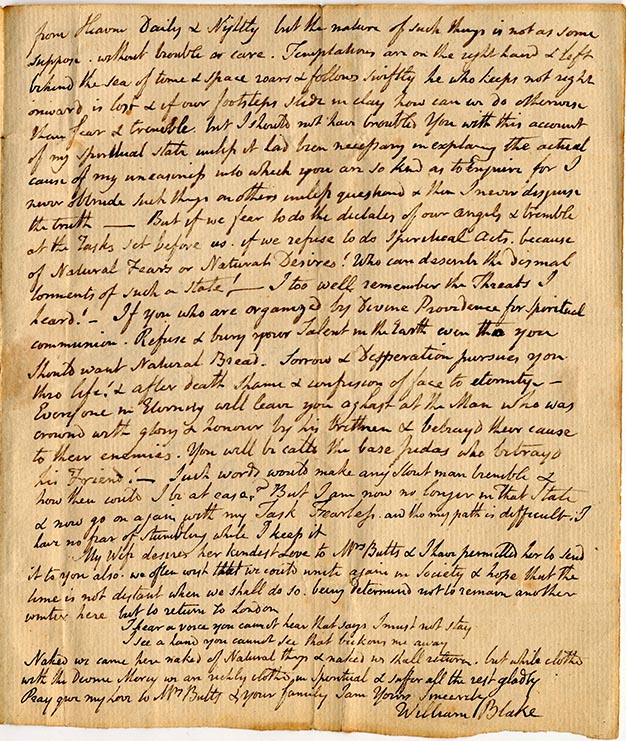 from Heaven Daily & Nightly but the nature of such things is not as some
suppose. without trouble or care. Temptations are on the right hand & left
behind the sea of time & space roars & follows swiftly he who keeps not right
onward is lost & if our footsteps slide in clay how can we do otherwise
than fear & tremble. but I should not have troubled You with this account
of my spiritual state unless it had been necessary in explaining the actual
cause of my uneasiness into which you are so kind as to Enquire for I
never obtrude such things on others unless questiond & then I never disguise
the truth — But if we fear to do the dictates of our Angels & tremble
at the Tasks set before us. if we refuse to do Spiritual Acts. because
of Natural Fears or Natural Desires! Who can describe the dismal
torments of such a state! — I too well remember the Threats I
heard! — If you who are organized by Divine Providence for Spiritual
communion. Refuse & bury your Talent in the Earth even tho you
should want Natural Bread. Sorrow & Desperation pursues you
thro life! & after death shame & confusion of face to eternity —
Every one in Eternity will leave you aghast at the Man who was
crownd with glory & honour by his brethren & betrayd their cause
to their enemies. You will be calld the base Judas who betrayd
his Friend! — Such words would make any Stout man tremble &
how then could I be at ease? But I am now no longer in that State
& now go on again with my Task Fearless. and tho my path is difficult. I
have no fear of stumbling while I keep it
My Wife desires her kindest Love to Mrs Butts & I have permitted her to send
it to you also. we often wish that we could unite again in Society & hope that the
time is not distant when we shall do so. being determind not to remain another
winter here but to return to London
I hear a voice you cannot hear that says I must not stay
I see a hand you cannot see that beckons me away
Naked we came here naked of Natural things & naked we shall return. but while clothd
with the Divine Mercy we are richly clothd in Spiritual & suffer all the rest gladly
Pray give my Love to Mrs Butts & your family I am Yours Sincerely
William Blake